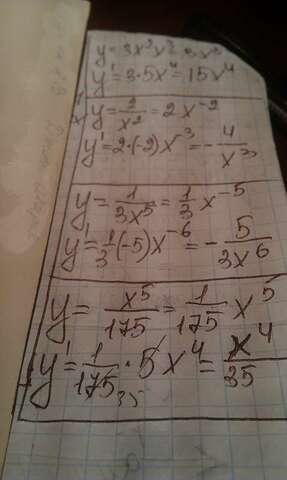 y = 3x³x² = 3x⁵
y' = 3·5x⁴ = 15x⁴
y = 2/x² = 2x⁻²
y' = 2·(-2)x⁻³ = -4/x³
y = 1/3x⁵ = 1/3 x⁻⁵
y' = 1/3(-5)x⁻⁶ = -5/3x⁶
y = x⁵/175 = 1/175 x⁵
y' = 1/175·5x⁴ = x⁴/35
35